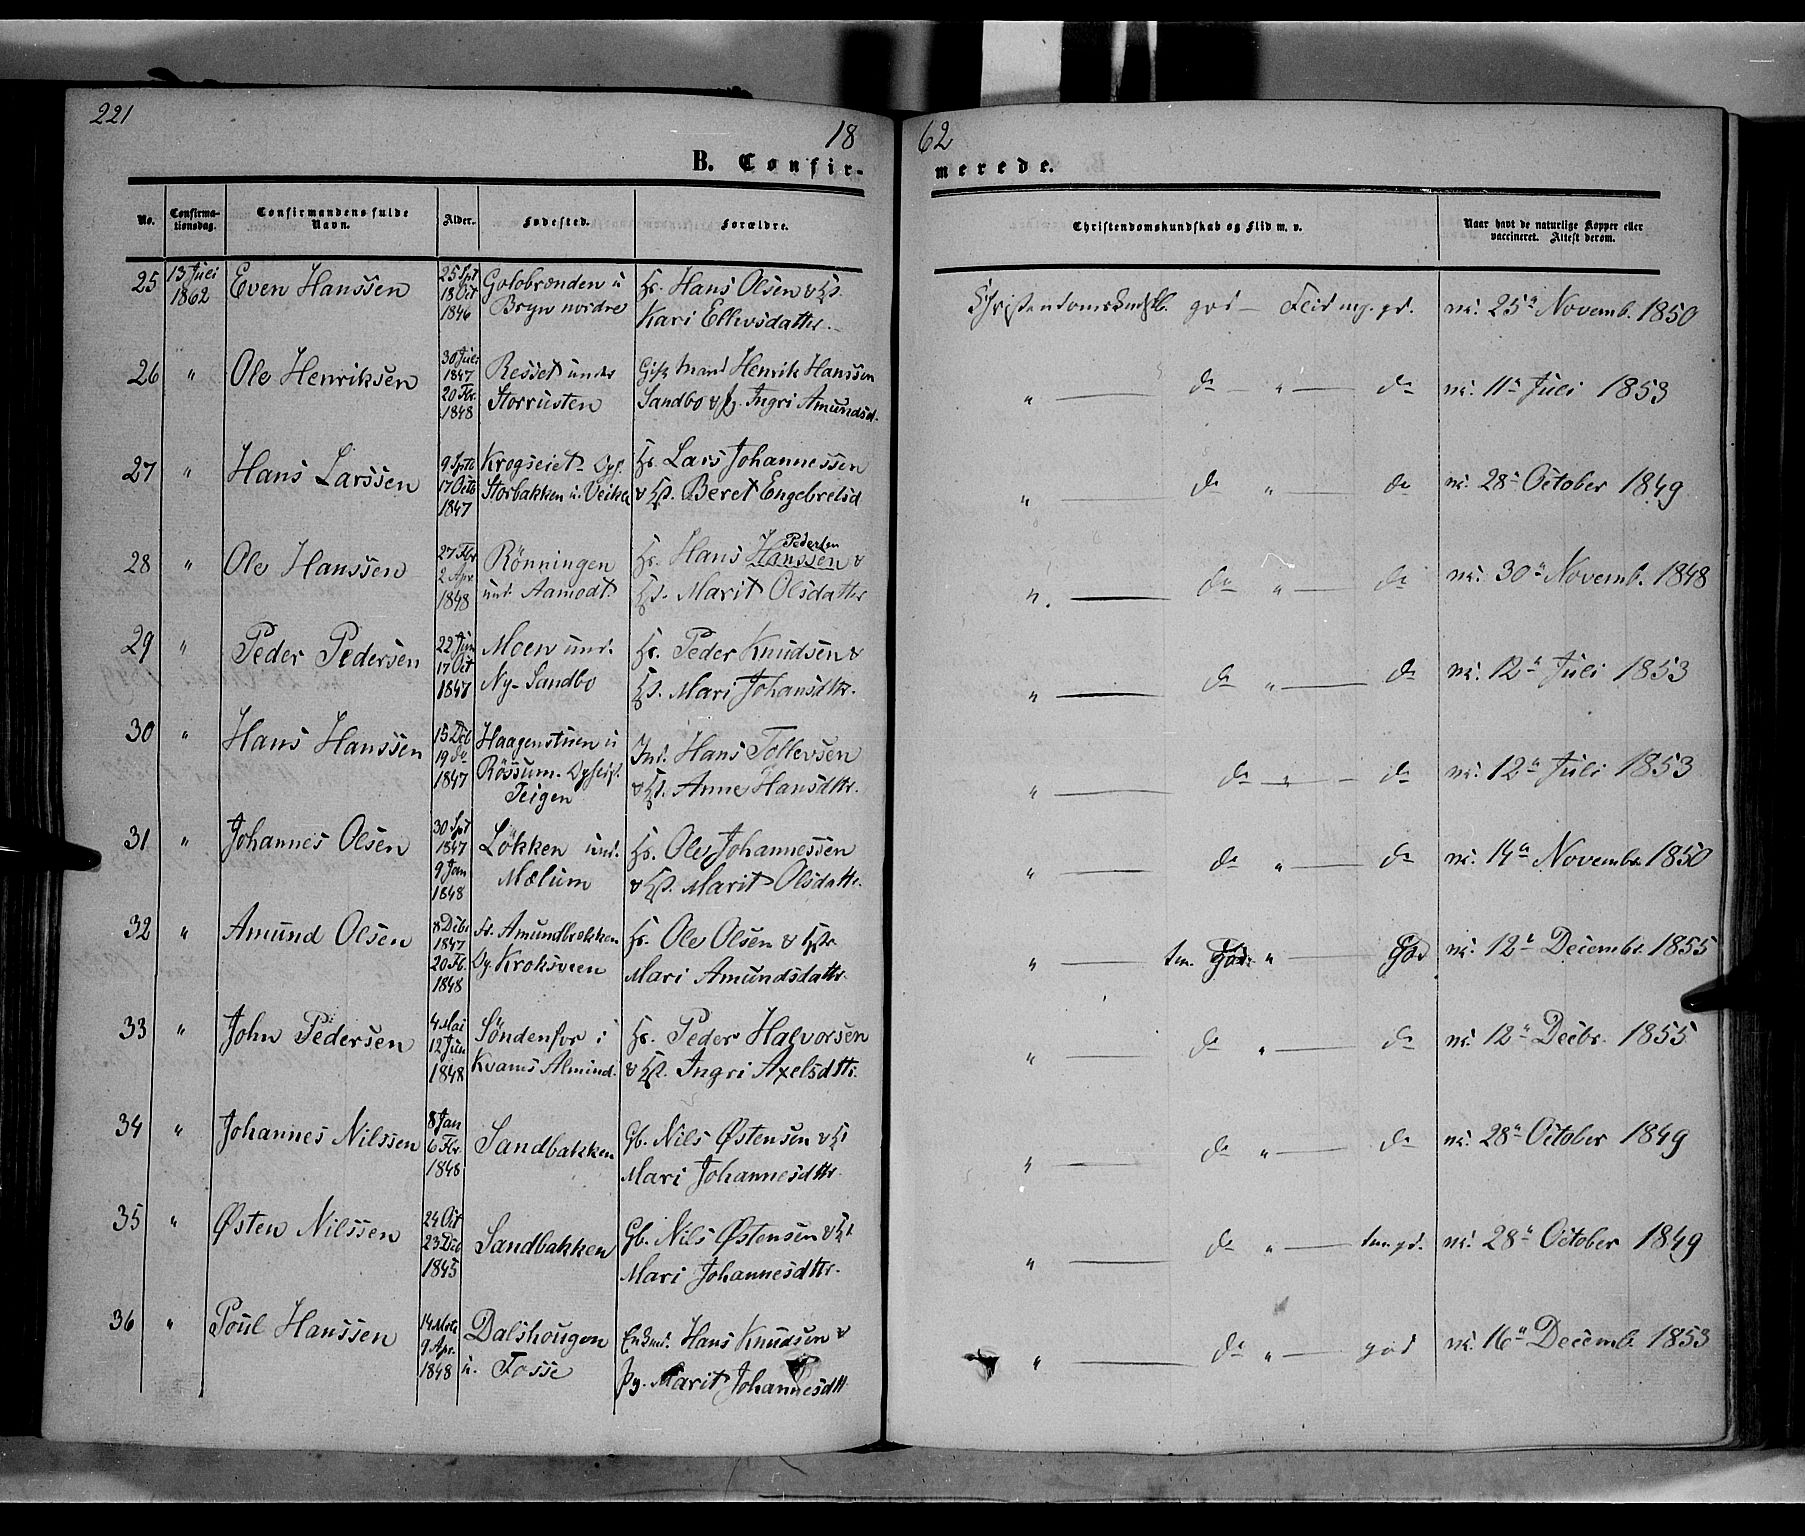 221
18
62
B. Confir-
merede.
No.
Confirma-
tionsdag.
Confirmandens fulde
Navn.
Alder.
Fødested.
Forældre.
Christendomskundskab og Flid m. v.
Naar havt de naturlige Kopper eller
vaccineret. Attest derom.
25 13 Juli 1862 Even Hanssen 25 Spt 18 Oct 1846 Golobrænden u Bryn nordre Hr. Hans Olsen & H. Kari Ellevsdattr. Christendomskundsk. god — Flid mg. gd. vc. 25de Novemb. 1850
26 " Ole Henriksen 30 Juli 1847 20 Fbr. 1848 Resset under Storrusten Gift Mand Henrik Hanssen Sandbo & p. Ingri Amundsd. " — do — " — do vc. 11te Juli 1853
27 " Hans Larssen 9 Sptb 17 Octb 1847 Krogseiet - Opf. Storbakken u. Veikle Hr. Lars Johannessen & H. Beret Engebretsd " — do " — do vc. 28de October 1849
28 " Ole Hanssen 27 Fbr 2 Apr. 1848 Rönningen und. Aamodt Hr. Hans Hanssen Pedersen & H. Marit Olsdattr " — do " — do vc. 30te Novemb. 1848
29 " Peder Pedersen 22 Jun 17 Oct 1847 Moen und. Ny-Sandbo Hr. Peder Knudsen & H. Mari Johansdtr. " — do " — do vc. 12te Juli 1853
30 " Hans Hanssen 15 Deb 19 do 1847 Haagenstuen u Rössum. Opfeigt. Teigen Ind. Hans Tollevsen & H. Anne Hansdtr. " — do " — do vc. 12te Juli 1853
31 " Johannes Olsen 30 Spt 1847 9 Jan 1848 Lökken und. Mælum Hr. Ole Johannessen & H. Marit Olsdattr. " — do " — do vc. 14de Novembr 1850
32 " Amund Olsen 8 Debr 1847 20 Fb. 1848 Fr. Amundbekken Op. Kroksveen Hr. Ole Olsen & H. Mari Amundsdattr. " — tem. God. " — God vc. 12te Decembr. 1855
33 " John Pedersen 4 Mai 12 Jun 1848 Söndenfor i Kvams Almind. Hr. Peder Halvorsen & H. Ingri Axelsdttr. " — do " — do vc. 12te Decbr. 1855
34 " Johannes Nilssen 8 Jan 6 Fbr. 1848 Sandbakken Gb. Nils Østensen & H Mari Johannesdttr. " — do " — do vc. 28de October 1849
35 " Østen Nilssen 24 Oct 23 Deb 1845 Sandbakken Gb. Nils Østensen & H. Mari Johannesdttr. " — do " — tem gd. vc. 28de October 1849
36 " Poul Hanssen 14 Mrts 9 Apr. 1848 Dalshougen u. Fosse Enkmd. Hans Knudsen & pg. Marit Johannesdtt " — do " — god vc. 16de Decemb. 1853